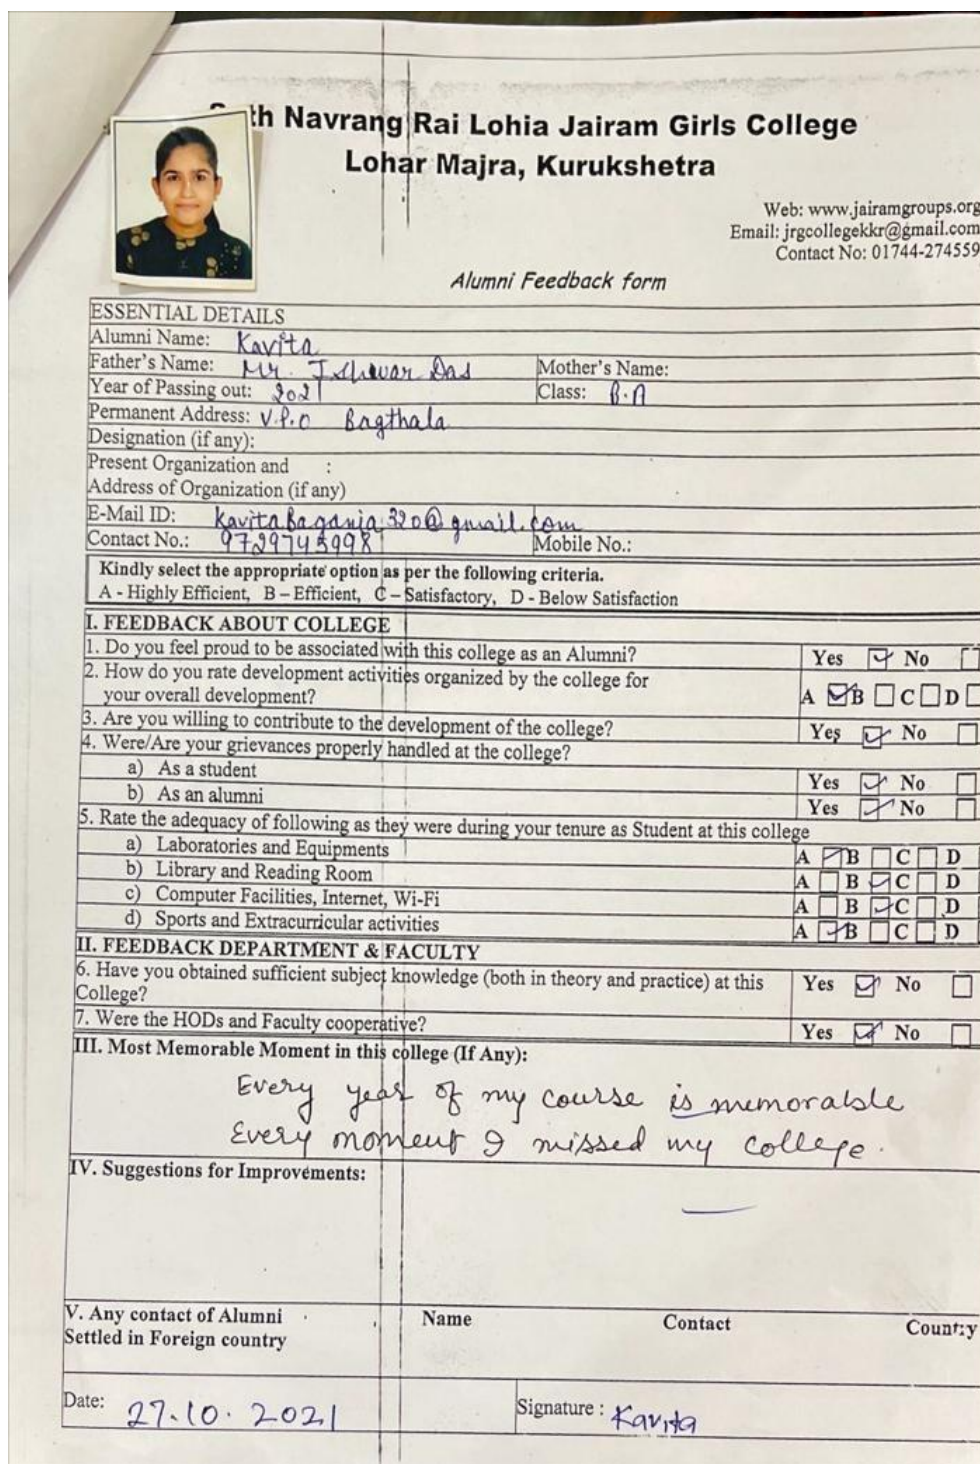 th Navrang Rai Lohia Jairam Girls College
Lohar Majra, Kurukshetra
Web: www.jairamgroups.org
Email: jrgcollegekkr@gmail.com
Contact No: 01744-274559
Alumni Feedback form
ESSENTIAL DETAILS
Alumni Name: Kavita
Father's Name: Mr. Ishwar Das Mother's Name:
Year of Passing out: 2021 Class: B.A
Permanent Address: V.P.O Bagthala
Designation (if any):
Present Organization and :
Address of Organization (if any)
E-Mail ID: @gmail.com
Contact No.: Mobile No.:
Kindly select the appropriate option as per the following criteria.
A - Highly Efficient, B – Efficient, C – Satisfactory, D - Below Satisfaction
I. FEEDBACK ABOUT COLLEGE
1. Do you feel proud to be associated with this college as an Alumni? Yes No
2. How do you rate development activities organized by the college for
your overall development? A B C D
3. Are you willing to contribute to the development of the college? Yes No
4. Were/Are your grievances properly handled at the college?
a) As a student Yes No
b) As an alumni Yes No
5. Rate the adequacy of following as they were during your tenure as Student at this college
a) Laboratories and Equipments A B C D
b) Library and Reading Room A B C D
c) Computer Facilities, Internet, Wi-Fi A B C D
d) Sports and Extracurricular activities A B C D
II. FEEDBACK DEPARTMENT & FACULTY
6. Have you obtained sufficient subject knowledge (both in theory and practice) at this Yes No
College?
7. Were the HODs and Faculty cooperative? Yes No
III. Most Memorable Moment in this college (If Any):
Every year of my course is memorable
Every moment I missed my college.
IV. Suggestions for Improvements:
V. Any contact of Alumni Name Contact Country
Settled in Foreign country
Date: 27.10.2021 Signature : Kavita